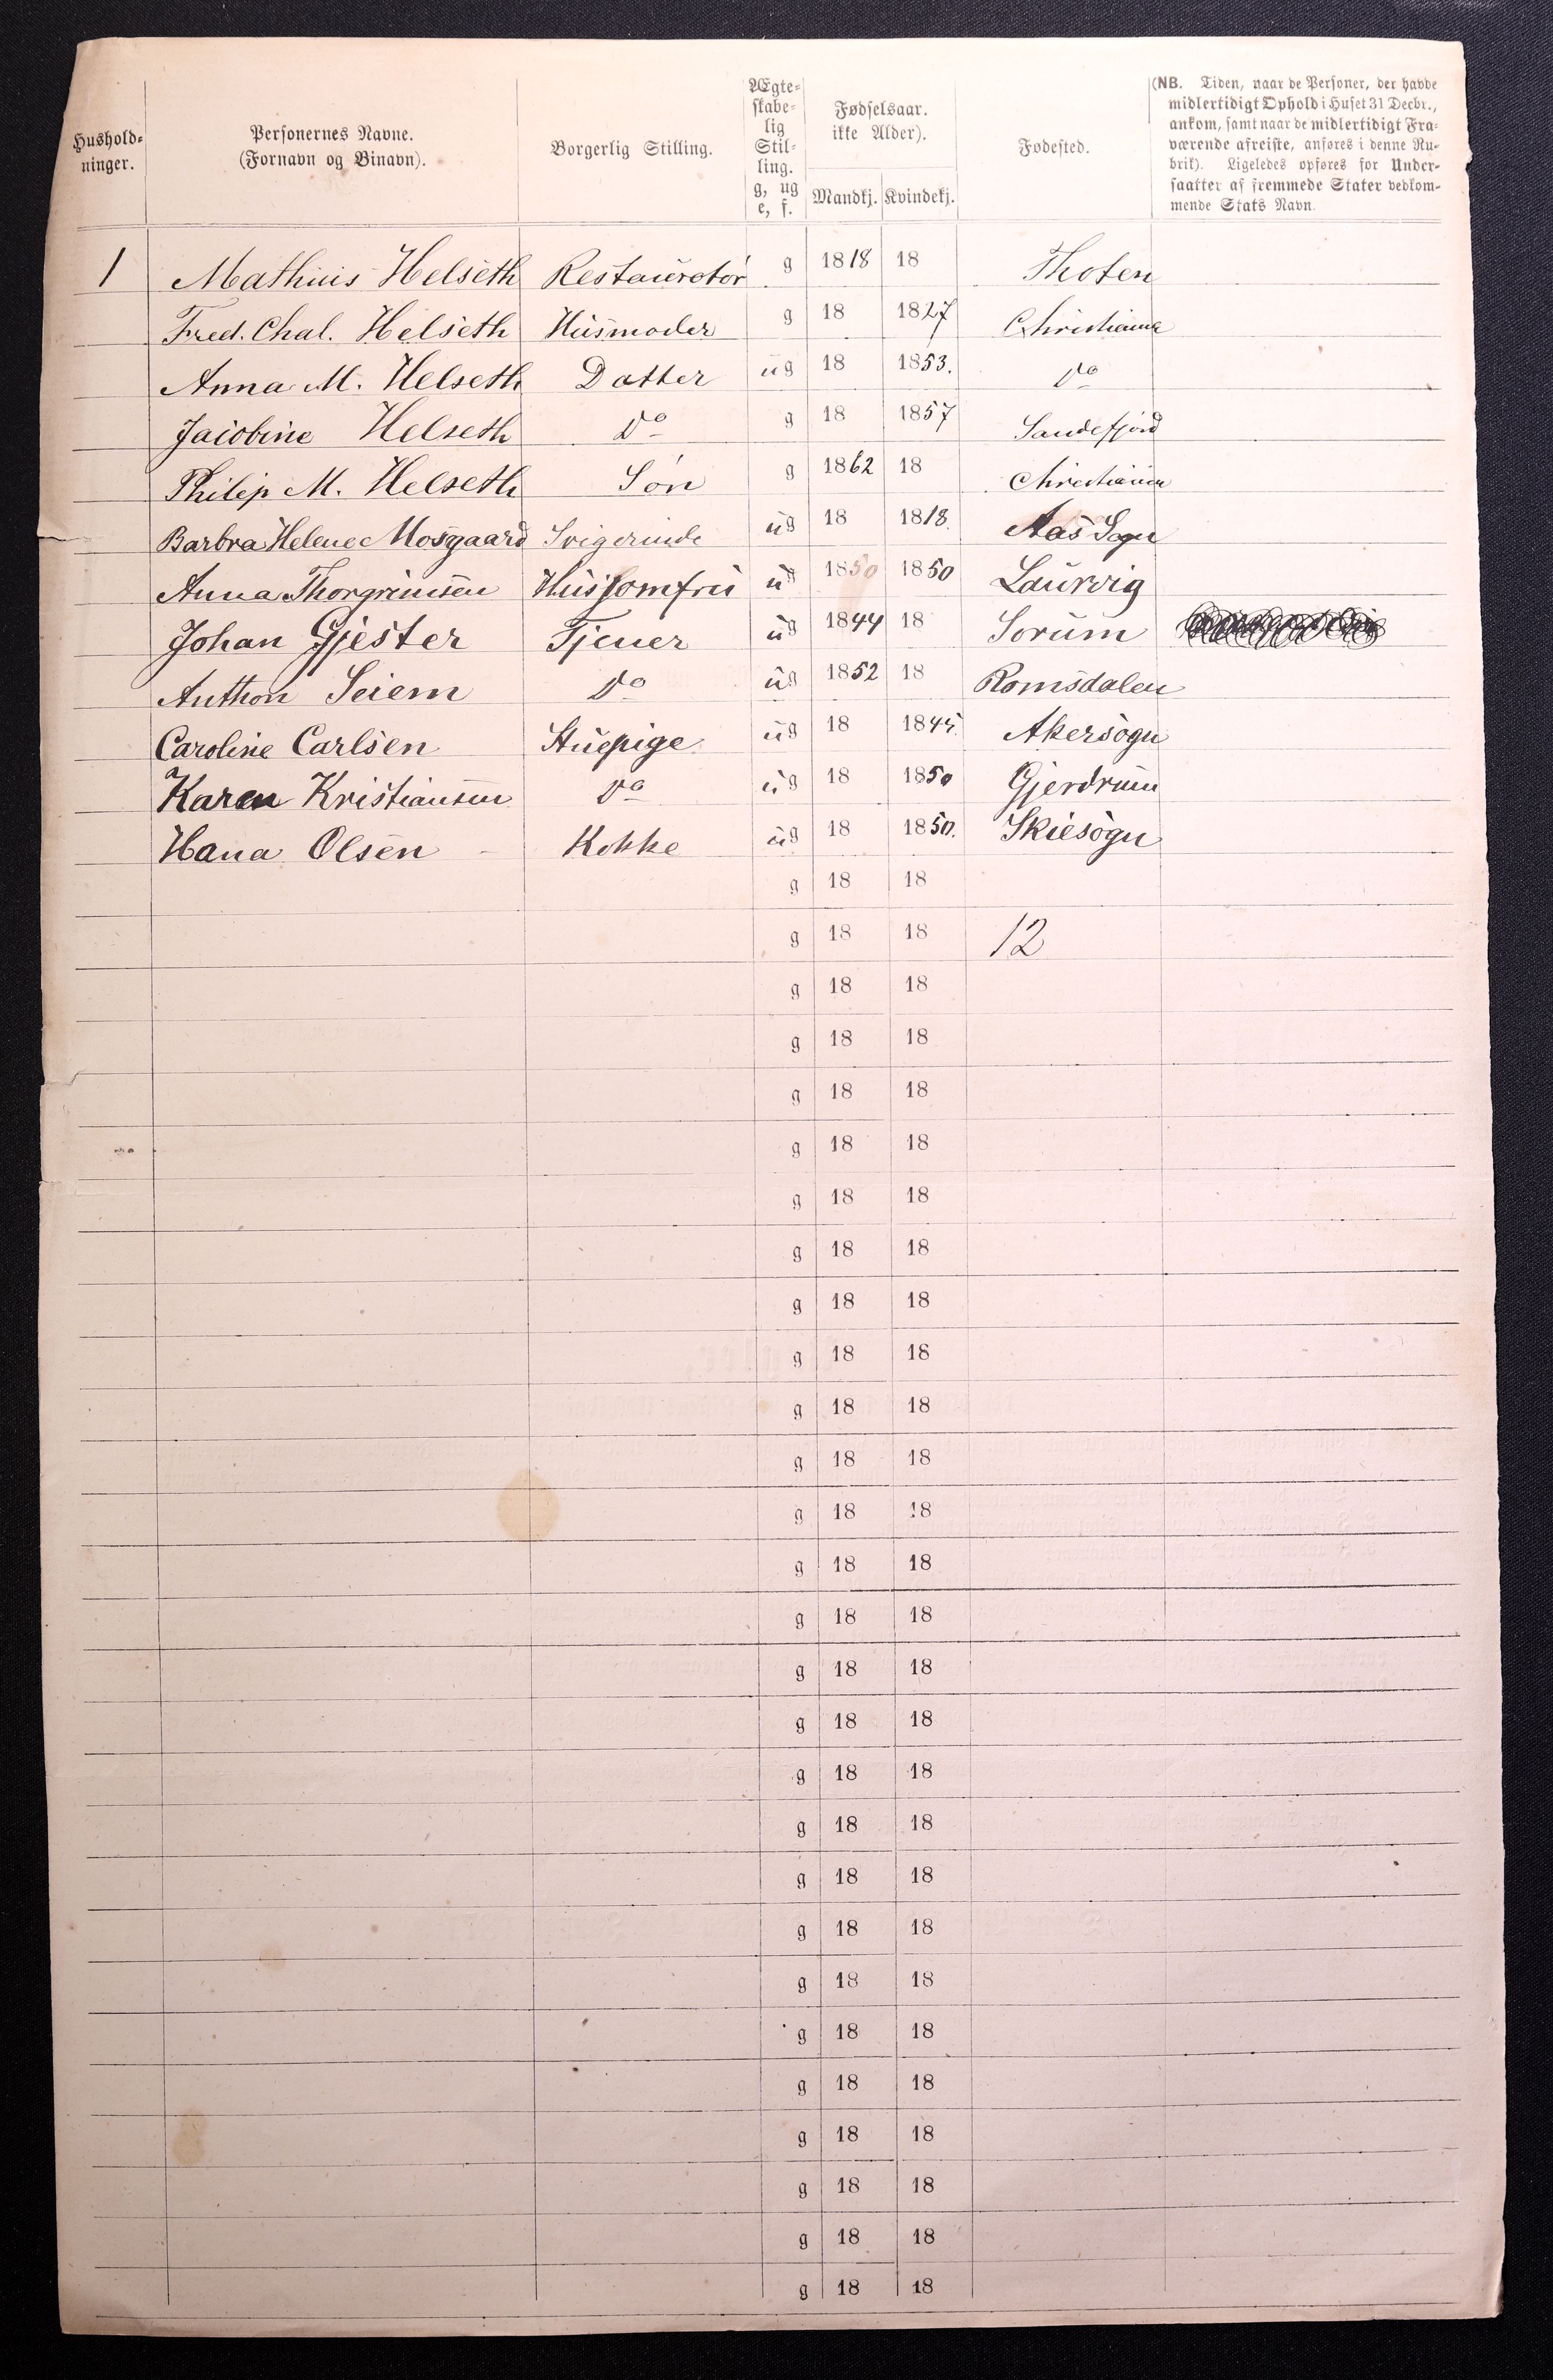 Hushold-
ninger.
Personernes Navne.
(Fornavn og Binavn).
Borgerlig Stilling.
Ægte-
skabe-
lig
Stil-
ling.
g, ug
e, f.
Fødselsaar.
ikke Alder).
Mandkj. Kvindekj.
Fødested.
(NB. Tiden, naar de Personer, der havde
midlertidigt Ophold i Huset 31 Decbr.,
ankom, samt naar de midlertidigt Fra-
værende afreiste, anføres i denne Ru-
brik). Ligeledes opføres for Under-
saatter af fremmede Stater vedkom-
mende Stats Navn.
1 Mathias Helseth Restauratør g 1818 18 Thoten
Fred. Chal. Helseth Husmoder g 18 1827 Christiania
Anna M. Helseth Datter ug 18 1853. Do
Jacobine Helseth Do g 18 1857 Sandefjord
Philip M. Helseth Søn g 1862 18 Christiania
Barbra Helene Mosgaard Svigerinde ug 18 1818. Aas Sogn
Anna Thorgrimsen Husjomfru ug 1850 1850 Laurvig
Johan Gjester Tjener ug 1844 18 Sorum
Anthon Seiem Do ug 1852 18 Romsdalen
Caroline Carlsen Stuepige ug 18 1845. Akersogn
Karen Kristiansen Do ug 18 1850 Gjerdrum
Hana Olsen Kokke ug 18 1850. Skiesogn
g 18 18
g 18 18 12
g 18 18
g 18 18
g 18 18
g 18 18
g 18 18
g 18 18
g 18 18
g 18 18
g 18 18
g 18 18
g 18 18
g 18 18
g 18 18
g 18 18
g 18 18
g 18 18
g 18 18
g 18 18
g 18 18
g 18 18
g 18 18
g 18 18
g 18 18
g 18 18
g 18 18
g 18 18